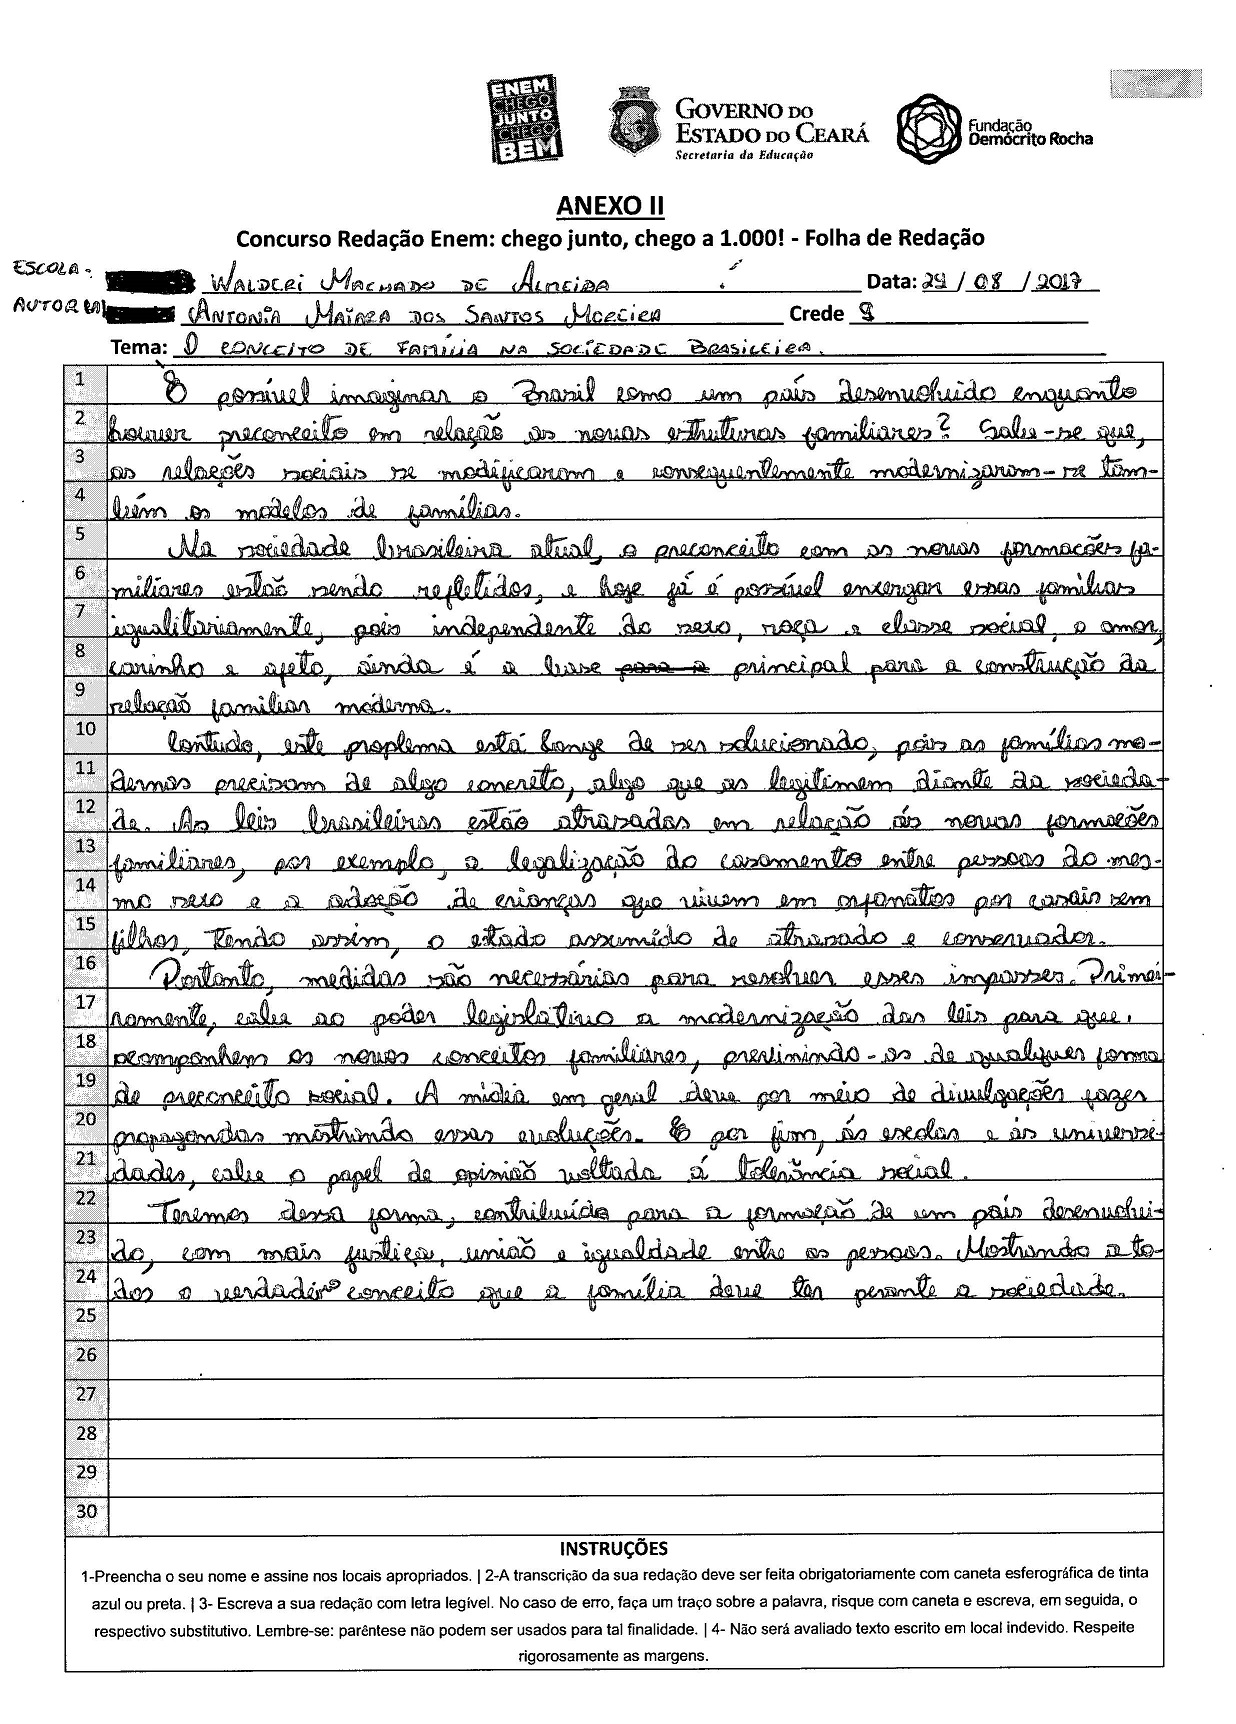 ENEM
CHEGO
JUNTO
CHEGO
BEM
GOVERNO DO
ESTADO DO CEARÁ
Secretaria da Educação
Fundação
Demócrito Rocha
ANEXO II
Concurso Redação Enem: chego junto, chego a 1.000! - Folha de Redação
ESCOLA - WALDERI MACHADO DE ALMEIDA Data: 29 / 08 / 2017
AUTOR(A) ANTONIA MAÍARA DOS SANTOS MOREIRA Crede 9
Tema: O CONCEITO DE FAMÍLIA NA SOCIEDADE BRASILEIRA.
1 É possível imaginar o Brasil como um país desenvolvido enquanto
2 houver preconceito em relação as novas estruturas familiares? Sabe-se que,
3 as relações sociais se modificaram e consequentemente modernizaram-se tam-
4 bém os modelos de famílias.
5 Na sociedade brasileira atual, o preconceito com as novas formações fa-
6 miliares estão sendo refletidos, e hoje já é possível enxergar essas famílias
7 igualitariamente, pois independente do sexo, raça e classe social, o amor,
8 carinho e afeto, ainda é a base para a principal para a construção da
9 relação familiar moderna.
10 Contudo, este proplema está longe de ser solucionado, pois as famílias mo-
11 dernas precisam de algo concreto, algo que as legitimem diante da socieda-
12 de. As leis brasileiras estão atrasadas em relação ás novas formações
13 familiares, por exemplo, a legalização do casamento entre pessoas do mes-
14 mo sexo e a adoção de crianças que vivem em orfanatos por casais sem
15 filhos, tendo assim, o estado assumido de atrasado e conservador.
16 Portanto, medidas são necessárias para resolver esses impasses. Primei-
17 ramente, cabe ao poder legislativo a modernização das leis para que,
18 acompanhem os novos conceitos familiares, prevìnindo-os de qualquer forma
19 de preconceito social. A mídia em geral deve por meio de divulgações fazer
20 propagandas mostrando essas evoluções. E por fim, ás escolas e às universi-
21 dades, cabe o papel de opinião voltada á tolerância social.
22 Teremos dessa forma, contribuído para a formação de um país desenvolvi-
23 do, com mais justiça, união e igualdade entre as pessoas. Mostrando a to-
24 dos o verdadeiro conceito que a família deve ter perante a sociedade.
25
26
27
28
29
30
INSTRUÇÕES
1-Preencha o seu nome e assine nos locais apropriados. | 2-A transcrição da sua redação deve ser feita obrigatoriamente com caneta esferográfica de tinta
azul ou preta. | 3- Escreva a sua redação com letra legível. No caso de erro, faça um traço sobre a palavra, risque com caneta e escreva, em seguida, o
respectivo substitutivo. Lembre-se: parêntese não podem ser usados para tal finalidade. | 4- Não será avaliado texto escrito em local indevido. Respeite
rigorosamente as margens.